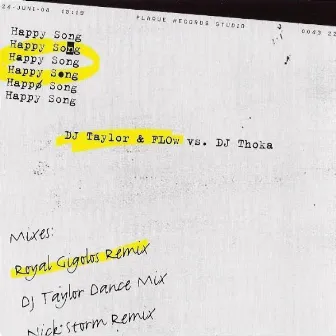 24-JUNI-04 10:10 PLAGUE RECORDS STUDIO 0049 22
Happy Song
Happy Song
Happy Song
Happy Song
Happy Song
Happy Song
DJ Taylor & FLOw vs. DJ Thoka
Mixes:
Royal Gigolos Remix
DJ Taylor Dance Mix
Nick Storm Remix